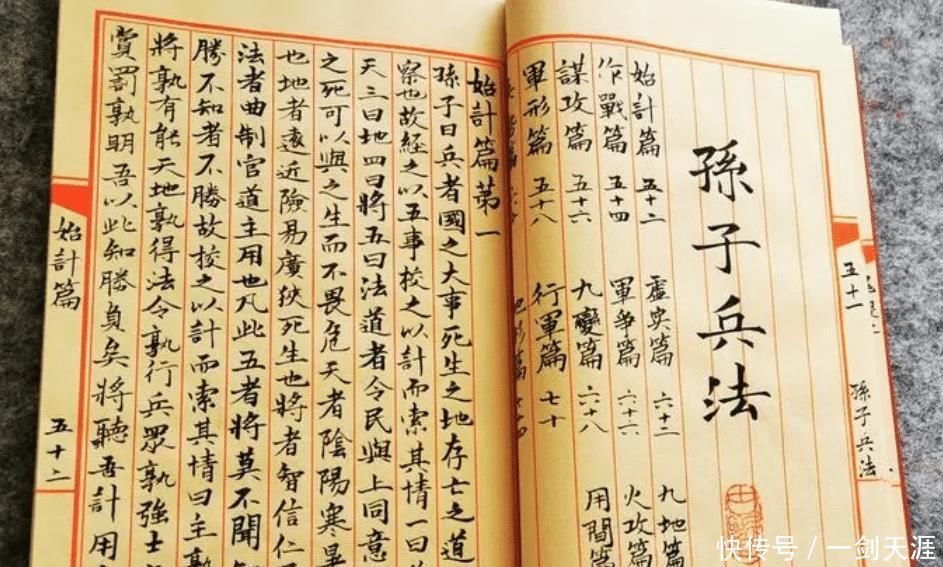 五十一
孫子兵法
孫子兵法
始計篇 五十二 虛实篇 六十三 九地篇
作戰篇 五十四 軍爭篇 六十六 火攻篇
謀攻篇 五十六 九變篇 六十八 用間篇
軍形篇 五十八 行軍篇 七十
始計篇第一
孫子曰兵者國之大事死生之地存亡之道
察也故經之以五事校之以計而索其情一曰
天三曰地四曰將五曰法道者令民與上同意
之死可以與之生而不畏危天者陰陽寒暑
也地者遠近險易廣狹死生也將者智信仁
法者曲制官道主用也凡此五者將莫不聞
勝不知者不勝故校之以計而索其情曰主孰
將孰有能天地孰得法令孰行兵眾孰強士
賞罰孰明吾以此知勝負矣將聽吾計用
始計篇
五十二
快传号 / 一剑天涯